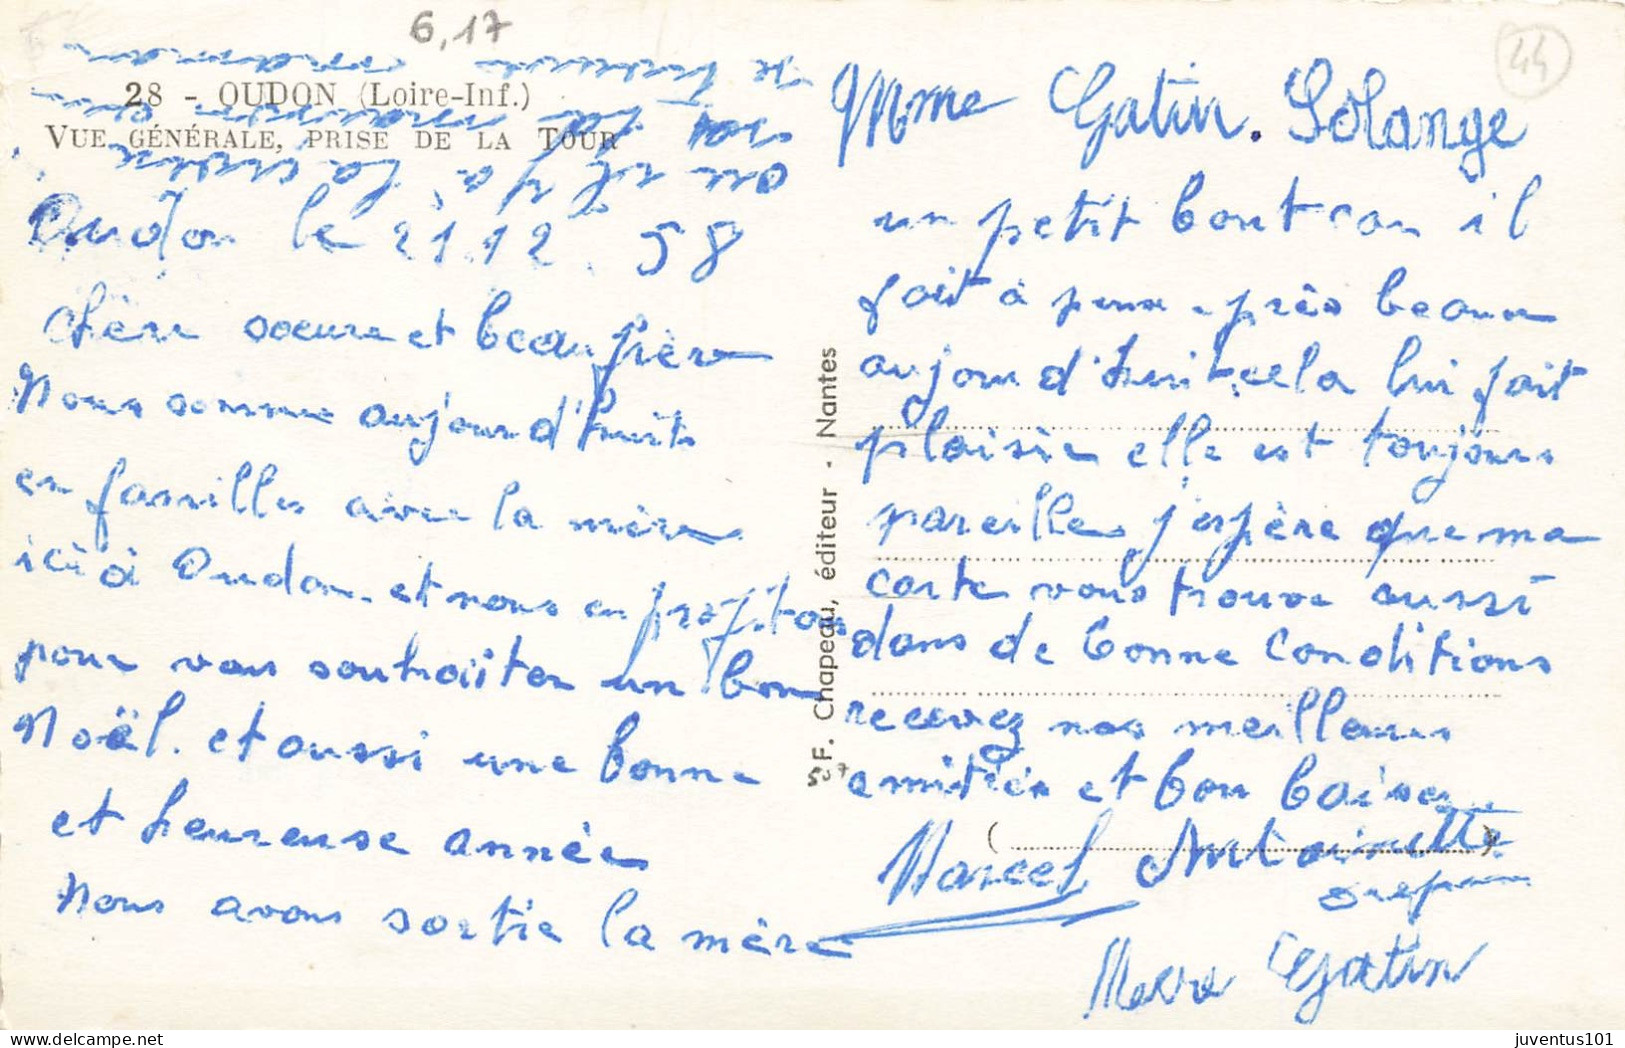 6,17
44
28 - OUDON (Loire-Inf.)
VUE GÉNÉRALE, PRISE DE LA TOUR
Oudon le 21.12.58
chère soeure et beau frère
Nous somme aujourd'huits
en familles avec la mère
ici à Oudon et nous en profitons
pour vous souhaiiter un bon
Noël. et aussi une bonne
et heureuse année
Nous avons sortie la mère
F. Chapeau, éditeur - Nantes
Mme Gatin. Solange
un petit bout car il
fait à peux près beaux
aujourd'huit cela lui fait
plaisir elle est toujours
pareilles j'espère que ma
carte vous trouve aussi
dans de bonne conditions
recevez nos meilleurs
amitiés et bon baiser
Marcel Antoinette
Mère Gatin
ou il y a la
juventus101